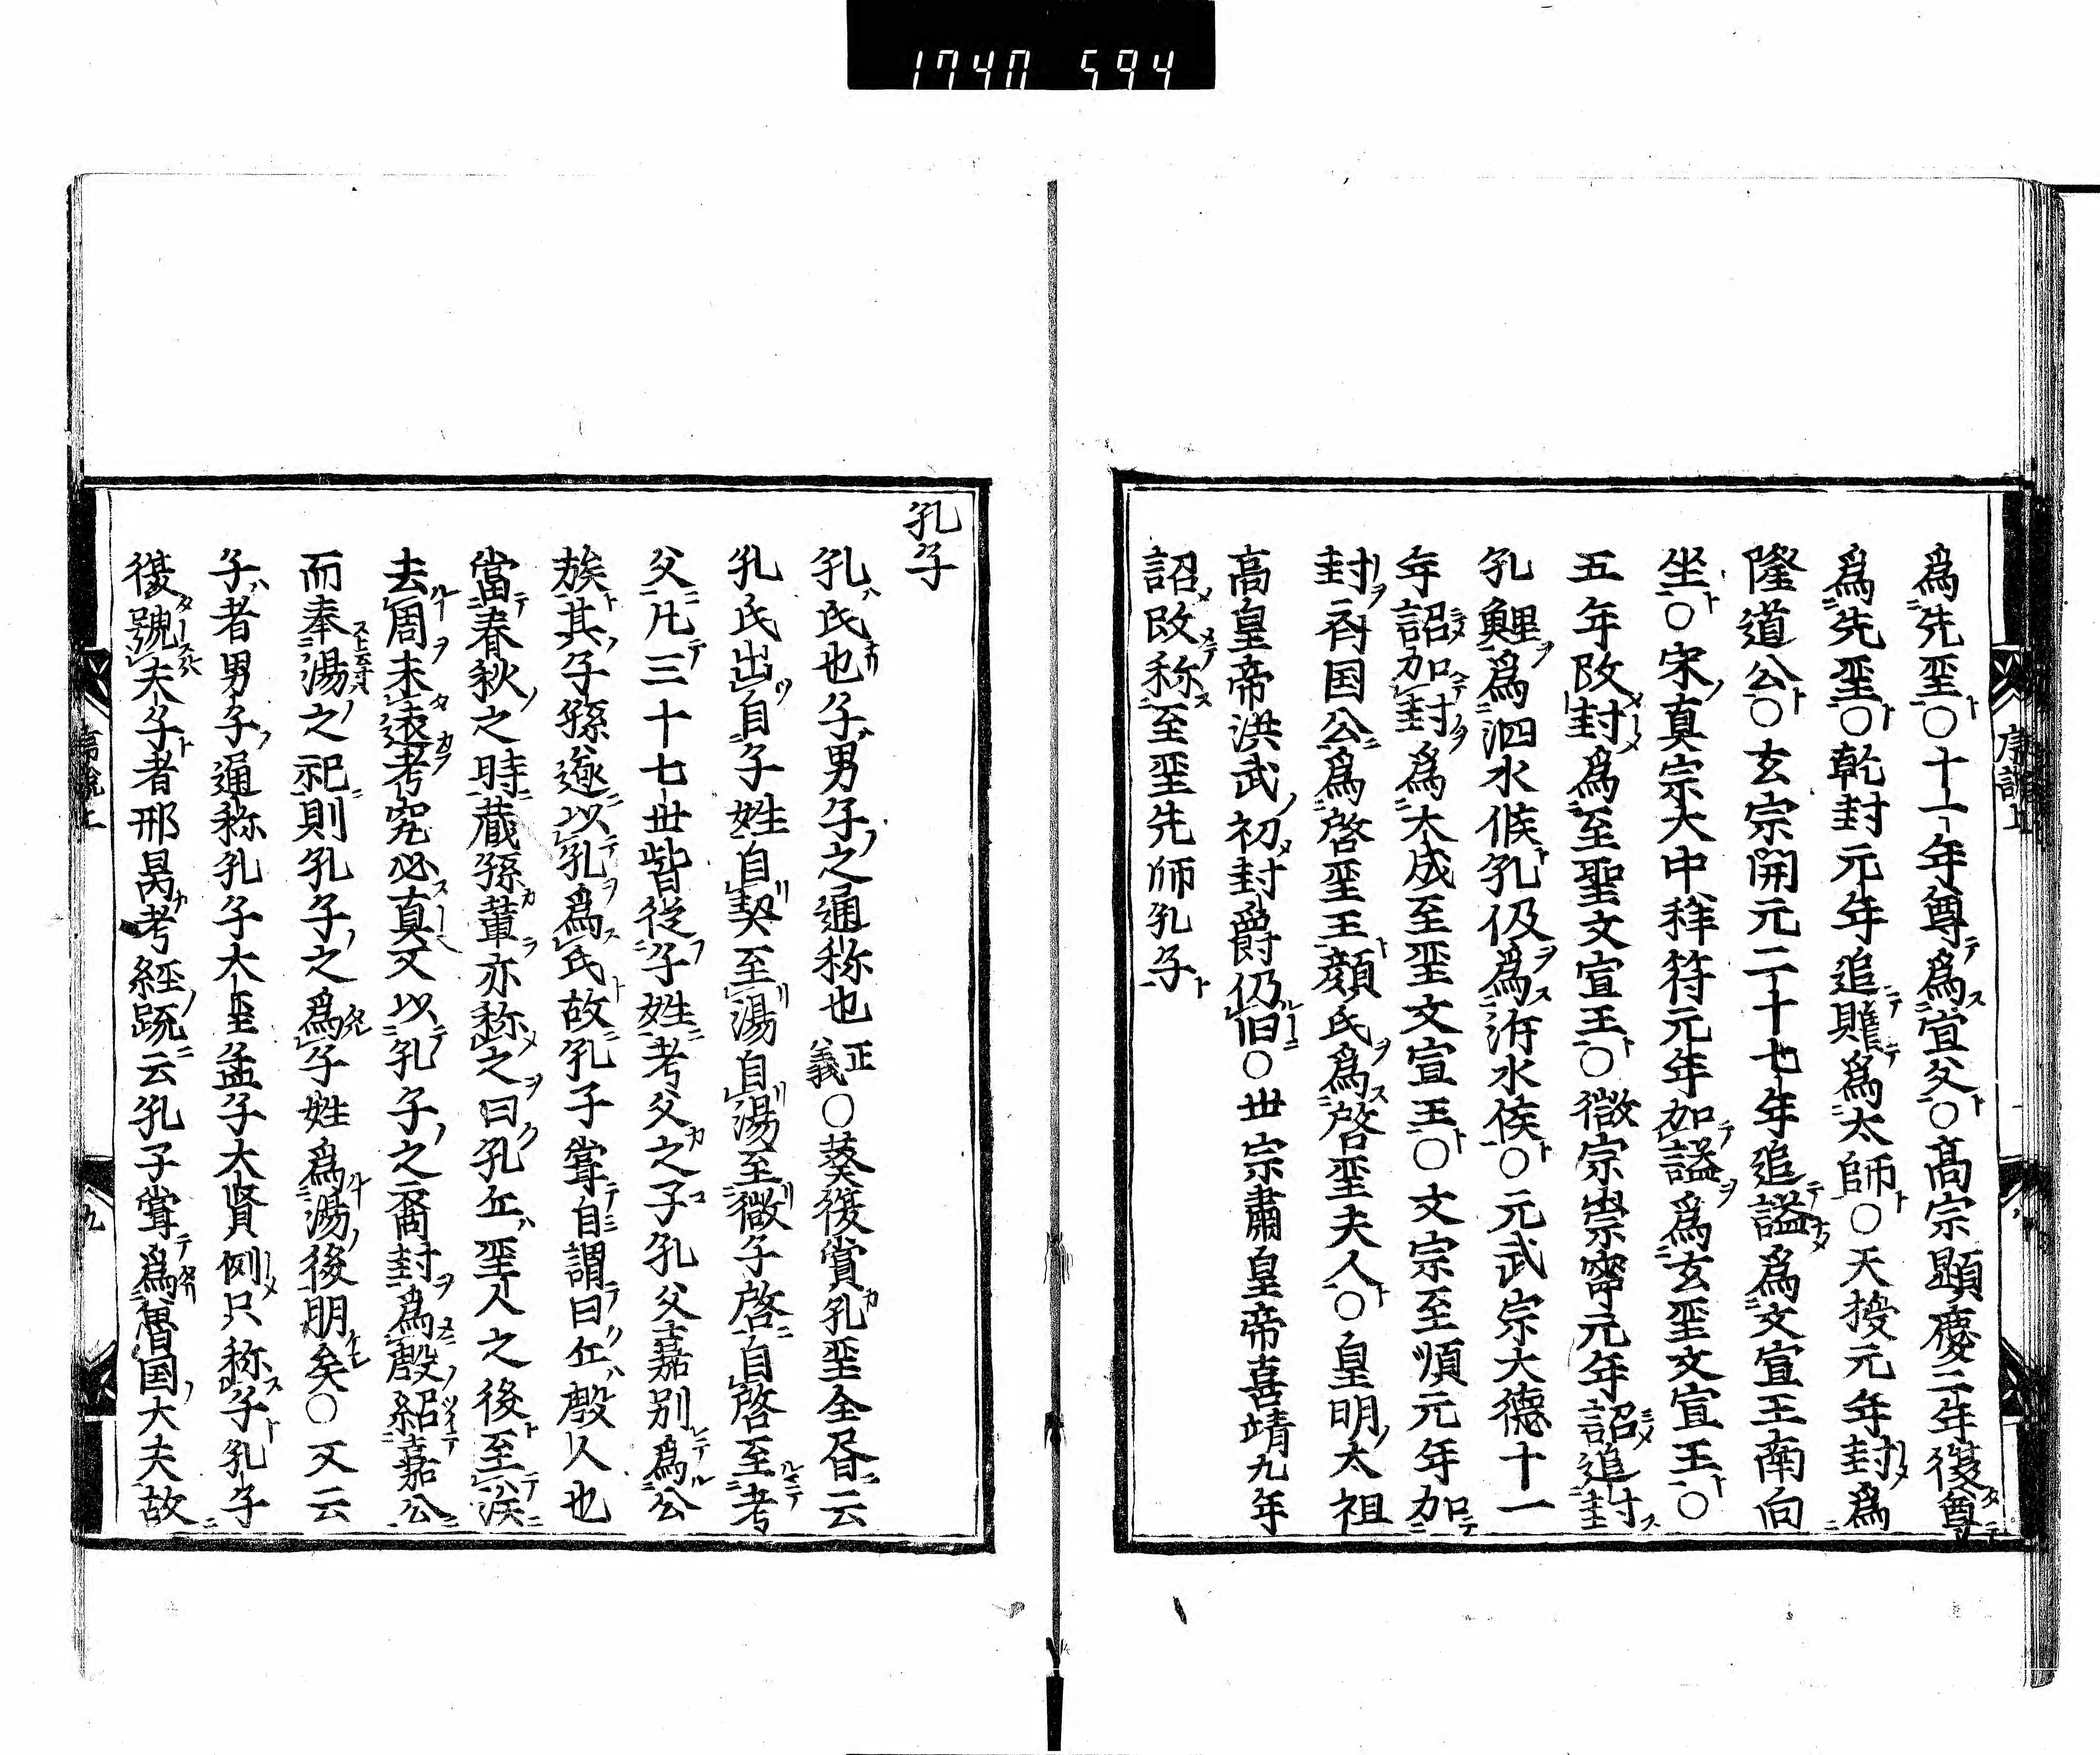 1740 594
為先聖○十一年尊為宣父○高宗顕慶二年復尊
為先聖○乾封元年追贈為太師○天授元年封為
隆道公○玄宗開元二十七年追謚為文宣王南向
坐○宋真宗大中祥符元年加謚為玄聖文宣王○
五年改封為至聖文宣王○徽宗崇寧元年詔追封
孔鯉為泗水侯孔伋為沂水侯○元武宗大徳十一
年詔加封為大成至聖文宣王○文宗至順元年加
封斉国公為啓聖王顔氏為啓聖夫人○皇明太祖
高皇帝洪武初封爵仍旧○世宗肅皇帝喜靖九年
詔改称至聖先師孔子
序説上
孔子
孔氏也子男子之通称也正義○蔡復賞孔聖全書云
孔氏出自子姓自契至湯自湯至微子啓自啓至考
父凡三十七世皆従子姓考父之子孔父嘉別為公
族其子孫遂以孔為氏故孔子嘗自謂曰丘殷人也
當春秋之時蔵孫輩亦称之曰孔丘聖人之後至漢
去周未遠考究必真又以孔子之裔封為殷紹嘉公
而奉湯之祀則孔子之為子姓為湯後明矣○又云
子者男子通称孔子大聖孟子大賢例只称子孔子
復號夫子者邢昺考経䟽云孔子嘗為魯国大夫故
九